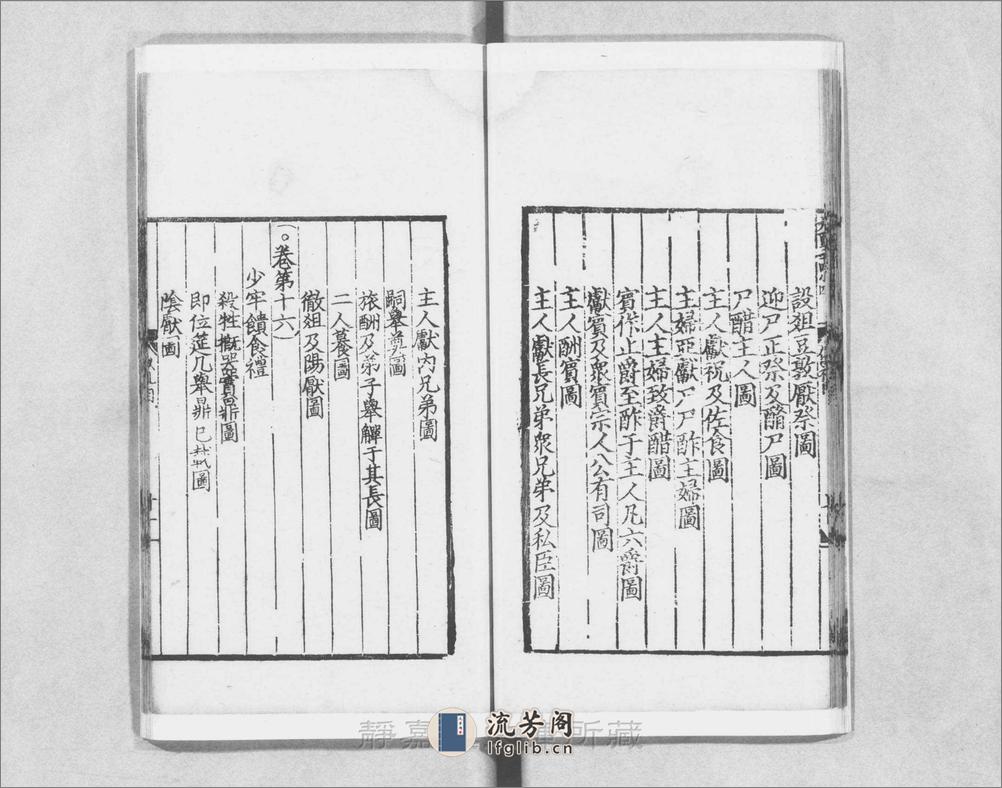 設俎豆敦厭祭圖
迎尸正祭及酳尸圖
尸醋主人圖
主人獻祝及佐食圖
主婦亞獻尸尸酢主婦圖
主人主婦致爵醋圖
賓作止爵至酢于主人凡六爵圖
獻賓及眾賓宗人公有司圖
主人酬賓圖
主人獻長兄弟眾兄弟及私臣圖
主人獻內兄弟圖
嗣舉奠圖
旅酬及弟子舉觶于其長圖
二人䭕圖
徹俎及陽厭圖
卷第十六
少牢饋食禮
殺牲概器實鼎圖
即位筵几舉鼎匕載圖
陰厭圖
靜嘉 所藏
流芳阁
lfglib.cn